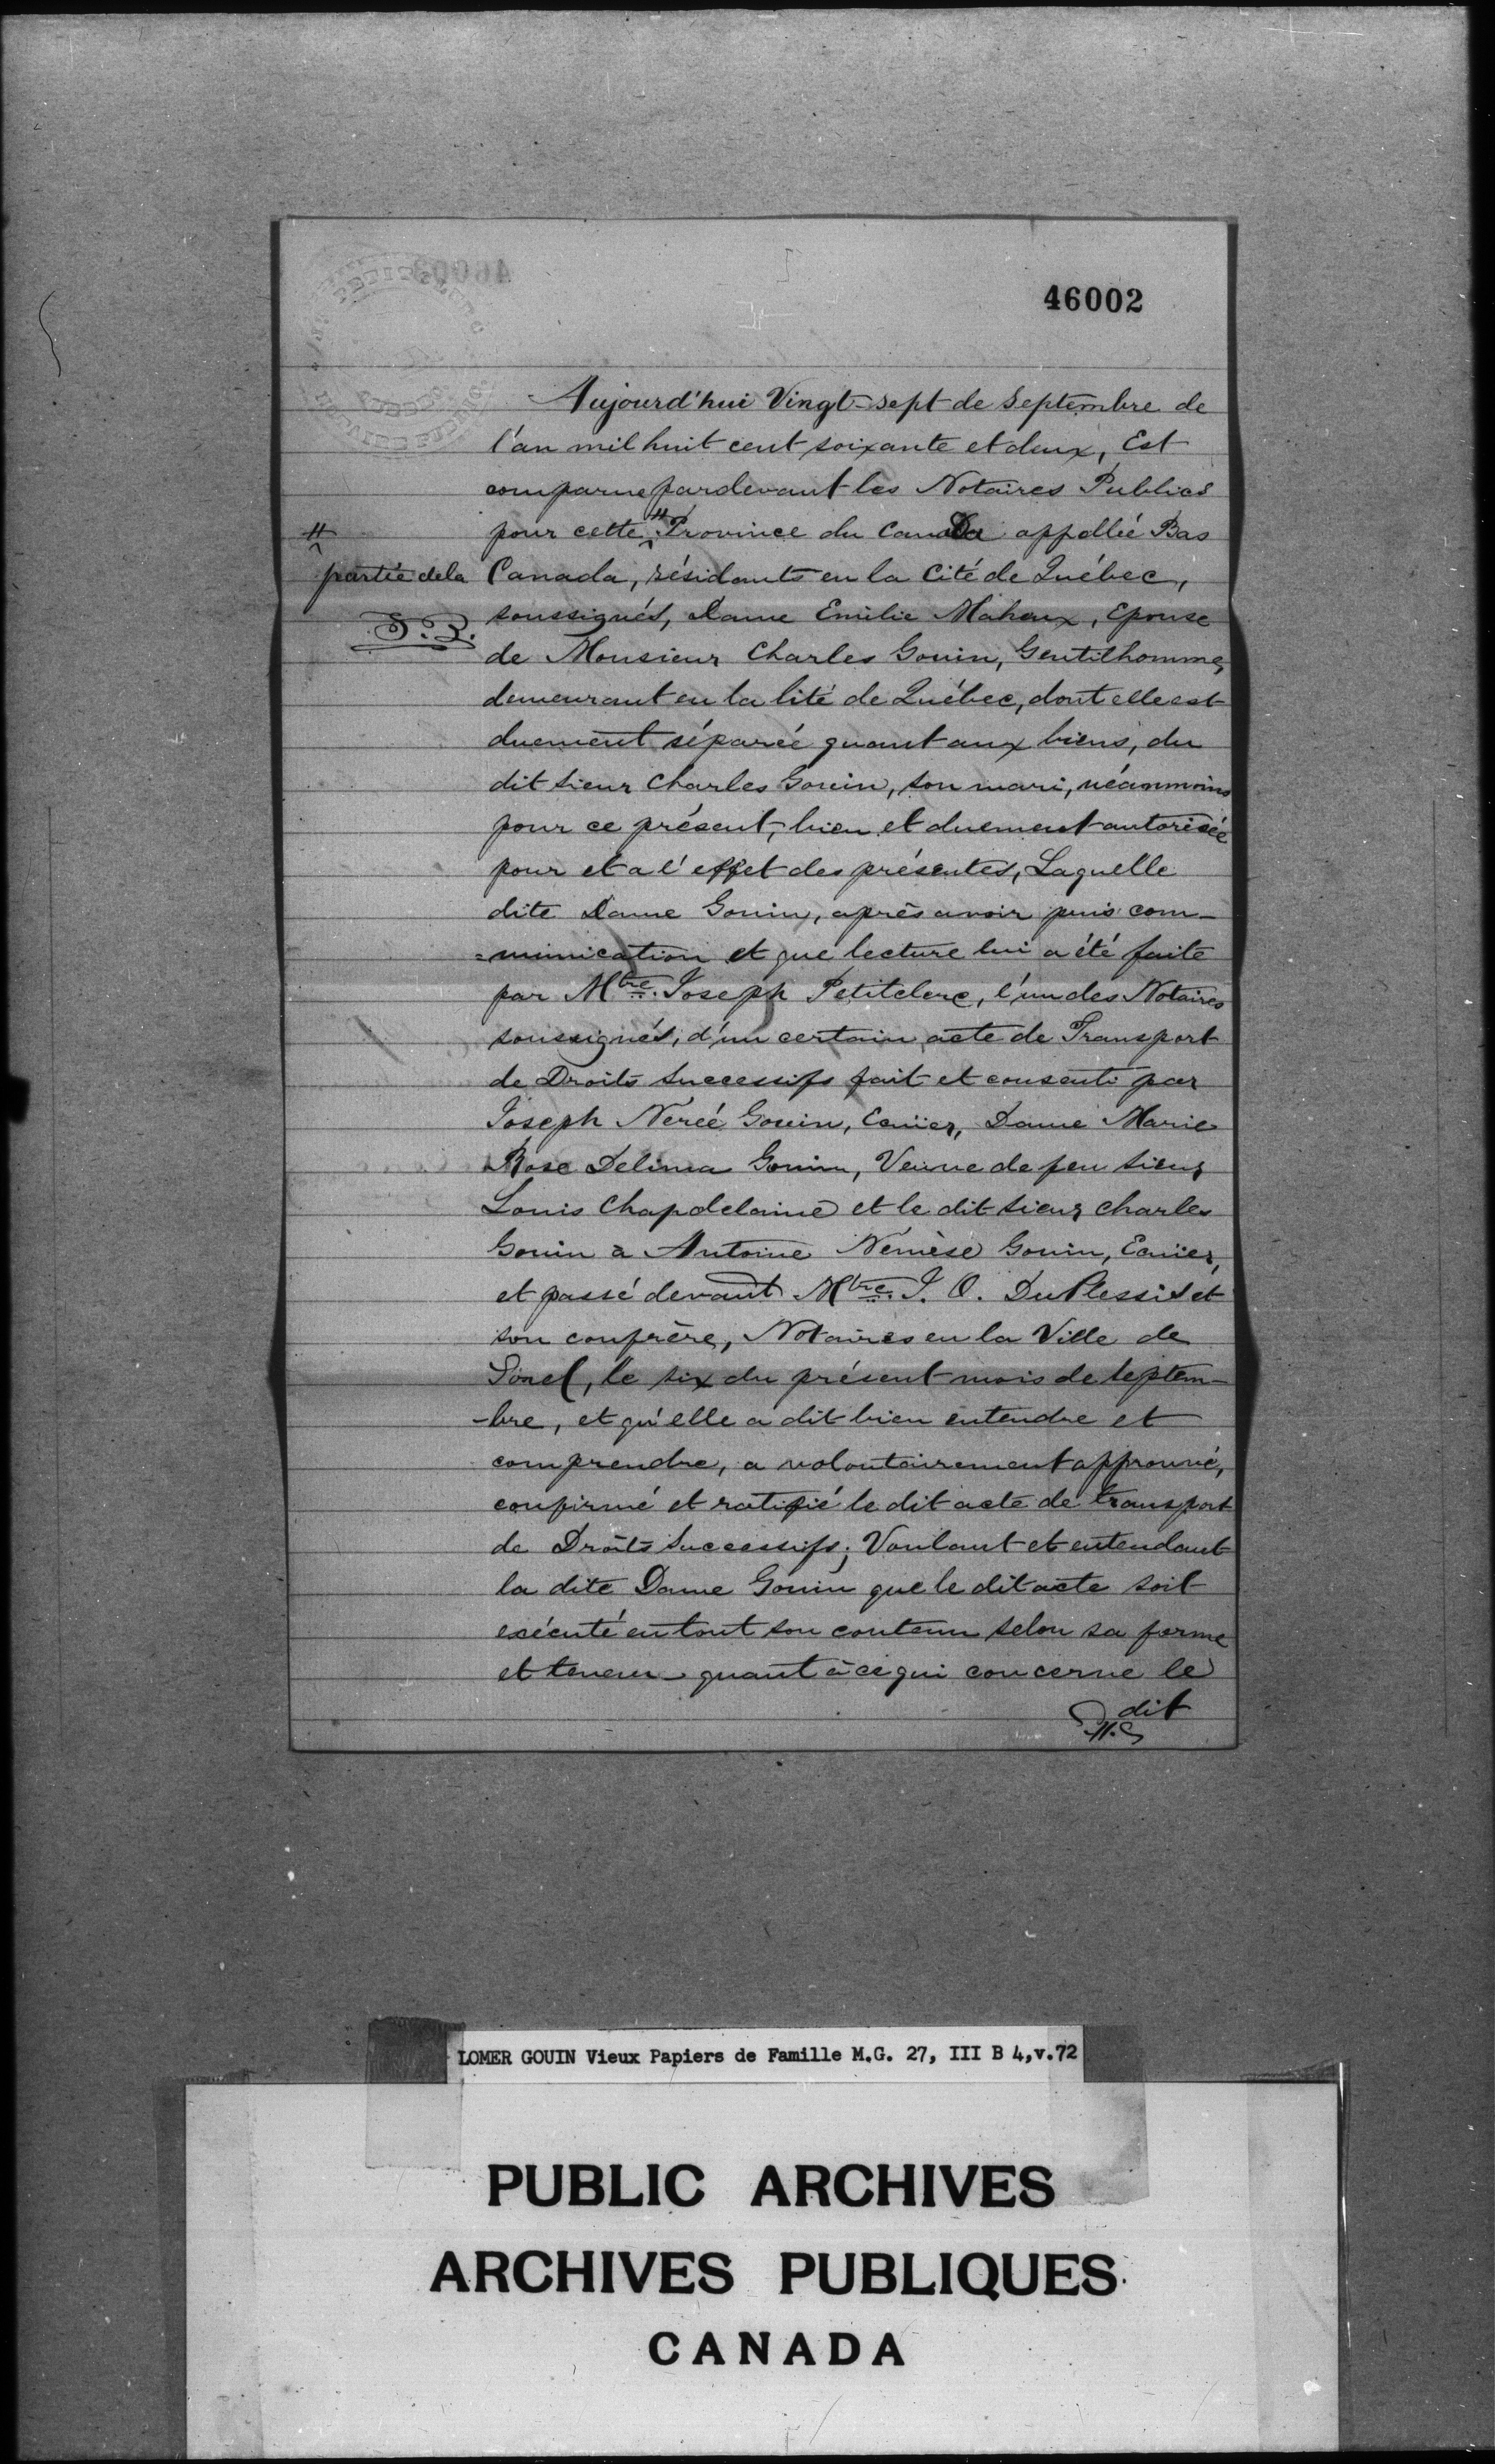 46002
Aujourd'hui Vingt-sept de Septembre de
l'an mil huit cent soixante et deux, Est
comparue pardevant les Notaires Publics
pour cette # Province du Canada appellée Bas
#
partie de la
J.P.
Canada, résidants en la Cité de Québec,
soussignés, Dame Emilie Maheux, Epouse
de Monsieur Charles Gouin, Gentilhomme,
demeurant en la Cité de Québec, dont elle est
duement séparée quant aux biens, du
dit Sieur Charles Gouin, son mari, néanmoins
pour ce présent, bien et duement autorisée
pour et a l'effet des présentes, Laquelle
dite Dame Gouin, après avoir pris com-
=munication et que lecture lui a été faite
par Mtre. Joseph Petitclerc, l'un des Notaires
soussignés, d'un certain acte de Transport
de Droits Successifs fait et consenti par
Joseph Nerée Gouin, Ecuïer, Dame Marie
Rose Delima Gouin, Veuve de feu Sieur
Louis Chapdelaine et le dit Sieur Charles
Gouin à Antoine Némèse Gouin, Ecuïer,
et passé devant Mtre. J. O. DuPlessis et
son confrère, Notaires en la Ville de
Sorel, le six du présent mois de Septem-
-bre, et qu'elle a dit bien entendre et
comprendre, a volontairement approuvé,
confirmé et ratifié le dit acte de transport
de Droits Successifs; Voulant et entendant
la dite Dame Gouin que le dit acte soit
exécuté en tout son contenu selon sa forme
et teneur quant à ce qui concerne le
dit
LOMER GOUIN Vieux Papiers de Famille M.G. 27, III B 4,v.72
PUBLIC ARCHIVES
ARCHIVES PUBLIQUES
CANADA